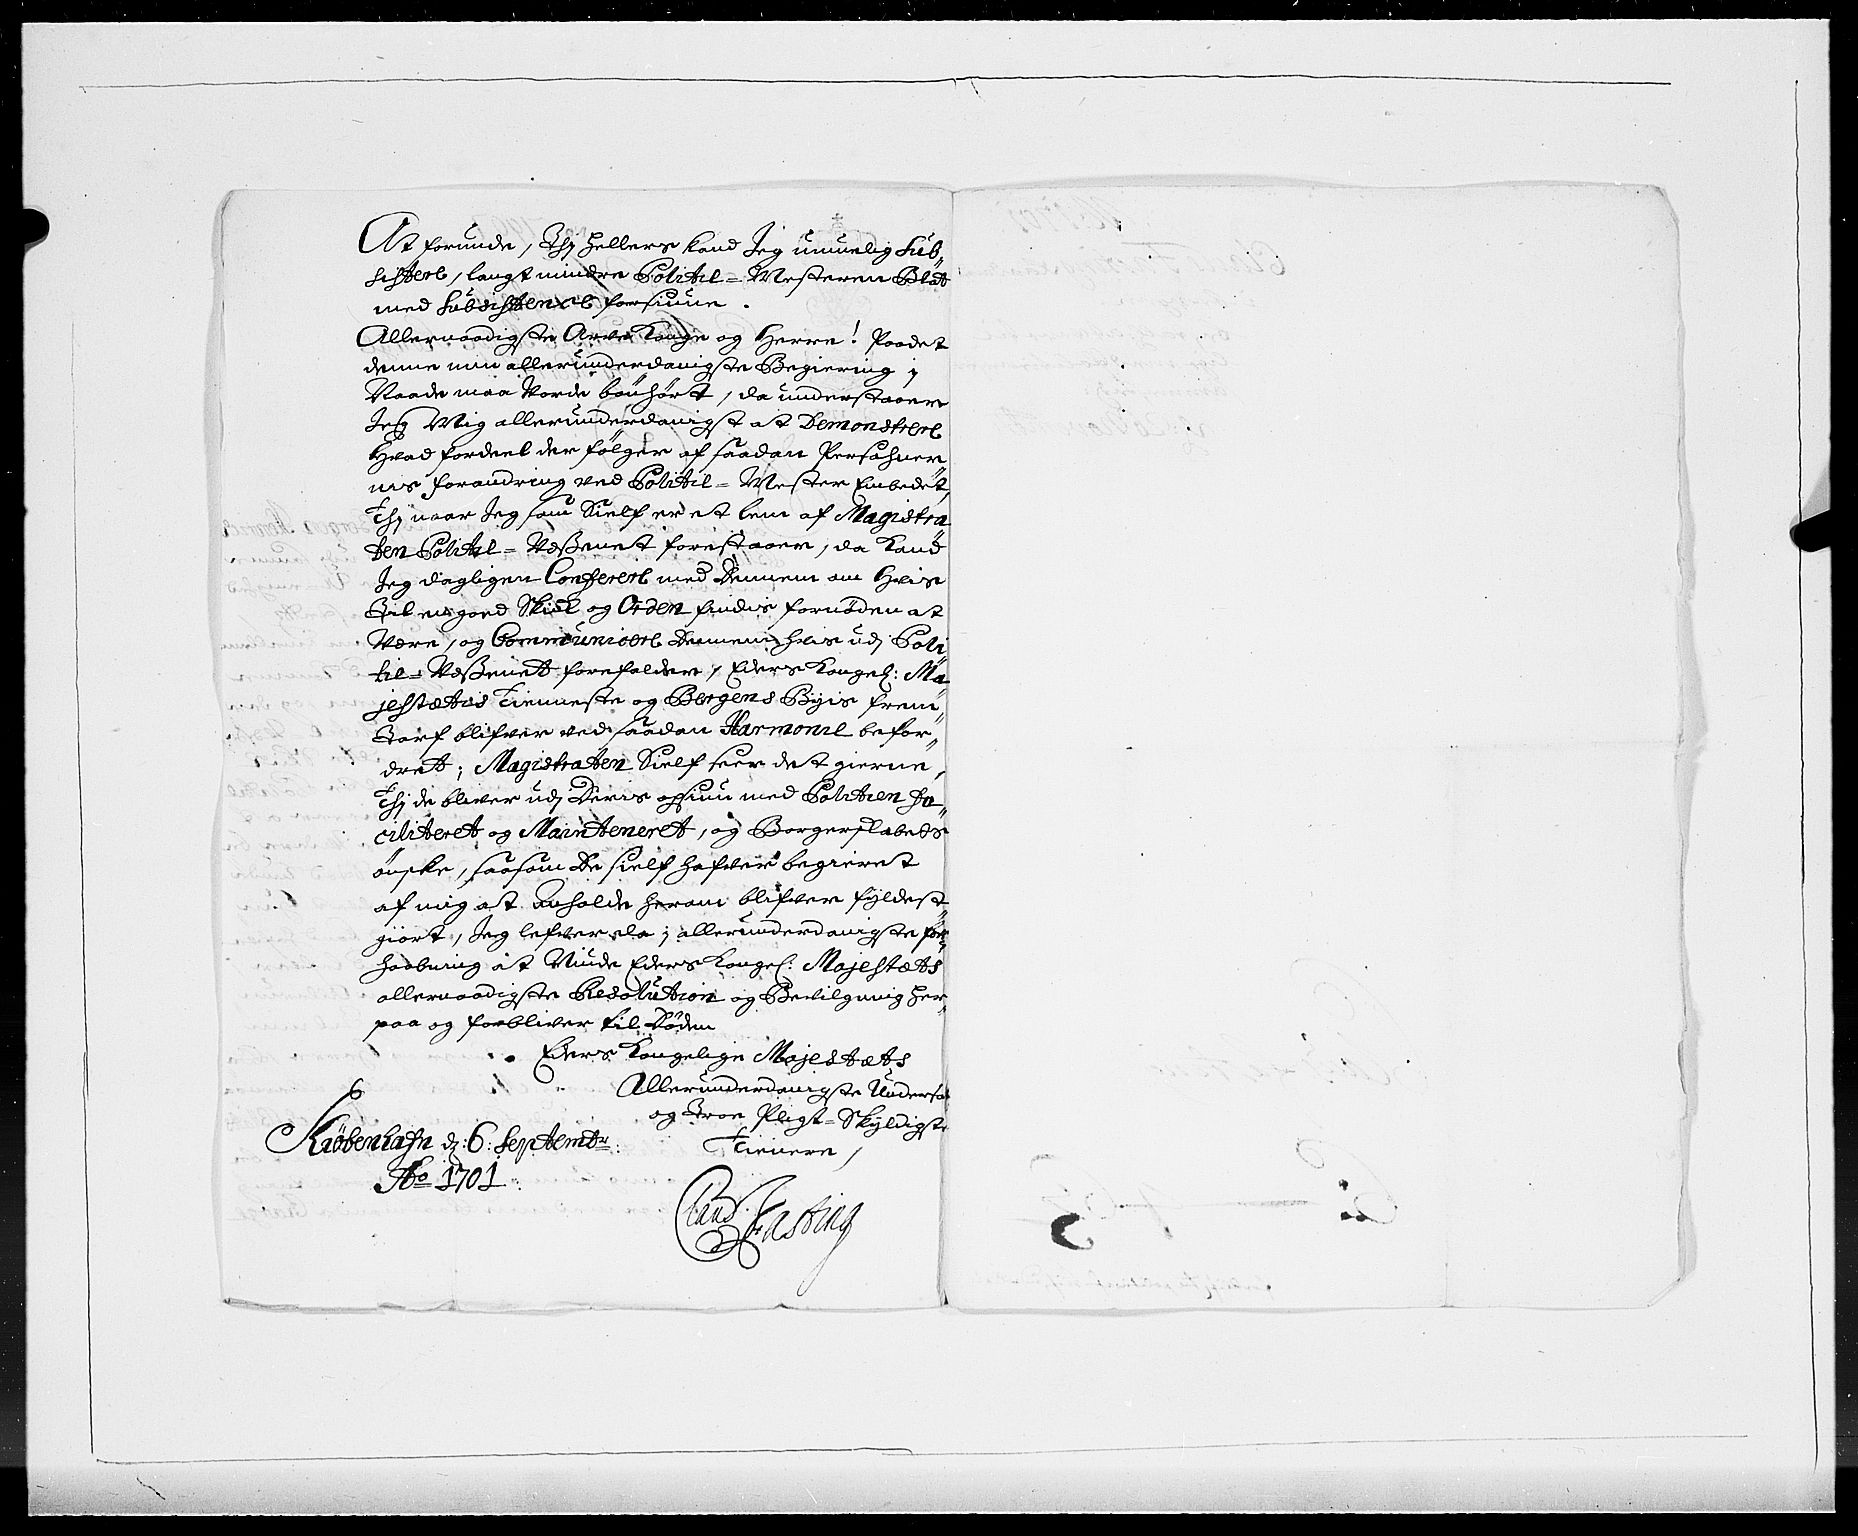 At forunde, Thj hellers kand Jeg umuelig Sub„
sistere, langt mindre Politie=Mesteren Blat
med Subsistence forsiune.
Allernaadigste Arve Konge og Herre! Paa det
denne min allerunderdanigste Begiering j
Naade maa Vorde bønhørt, da understaaer
Jeg Mig allerunderdanigst at Demonstrere
Hvad fordeel der følger af saadan Persohner„
nis forandring ved Politie=Mester Embedet,
Thj naar Jeg som Sielf er et lem af Magistra„
ten Politie=Væßenet forestaaer, da kand
Jeg dagligen Conferere med Dennem om Hvis
Til en goed Skick og Orden findis fornøden at
Være, og Communicere Dennem hvis udj Poli„
tie=Væßenet forefalder, Eders Kongel: Ma„
jestætes Tienneste og Bergens Byis frem„
Tarf blifver ved saadan Harmonie befor„
dret; Magistraten Sielf seer det gierne,
Thj de bliver udj Deris opsiun med Politien fa„
ciliteret og Mainteneret, og Borgerskabeds
ønske, saasom De sielf hafver begieret
af mig at anholde herom blifver fyldest„
giort, Jeg lefver da j allerunderdanigste for„
haabning at Niude Eders Kongel: Majestæts
allernaadigste Resolution og Bevilgning her„
paa og forbliver til Døden
Eders Kongelige Majestæts
Allerunderdanigste Undersaat
og Troe Pligt=Skyldigste
Tienere,
Kiøbenhafn d: 6 Septembr:
Ao 1701.
Claud: Fasting